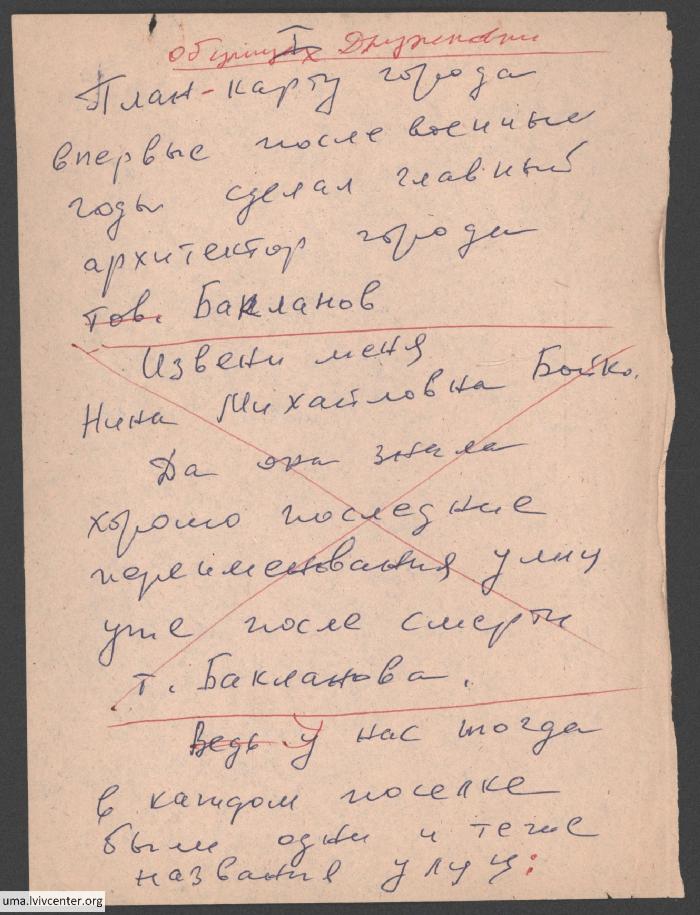 I
об улицах Дружковки
План-карту города
впервые после военные
годы сделал главный
архитектор города
тов. Бакланов
Извени меня
Нина Михайловна Бойко.
Да она знала
хорошо последние
переименования улиц
уже после смерти
т. Бакланова.
Ведь у нас тогда
в каждом поселке
были одни и теже
названия улиц:
uma.lvivcenter.org